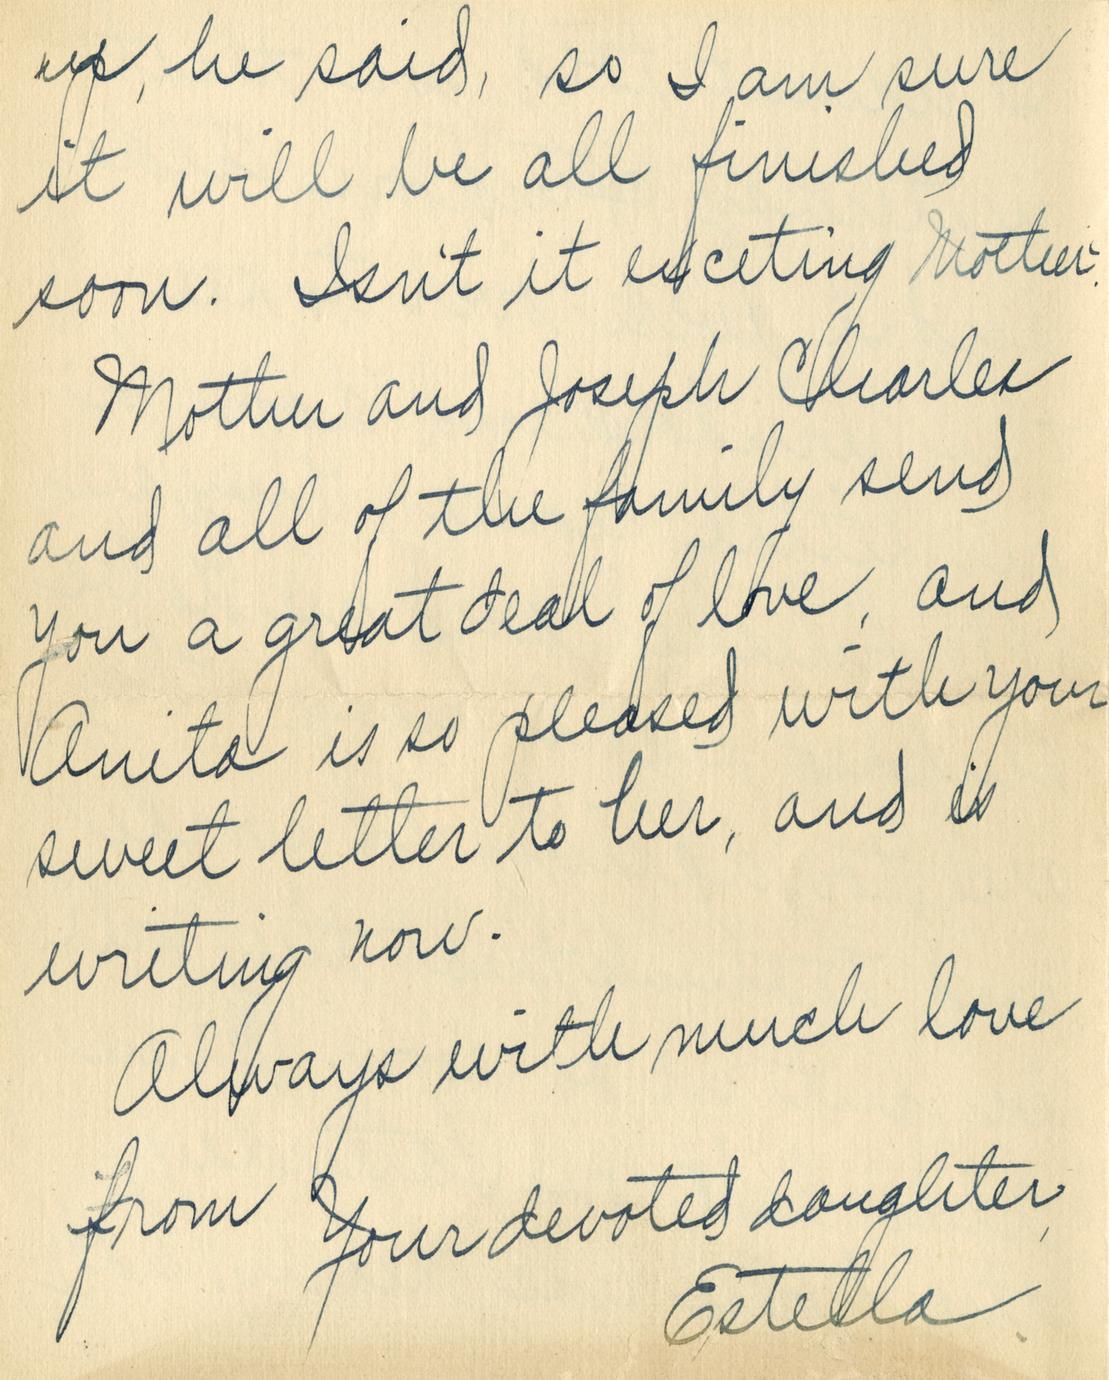 up, he said, so I am sure
it will be all finished
soon. Isn't it exceting Mother.
Mother and Joseph Charles
and all of the family send
you a great deal of love, and
Anita is so pleased with your
sweet letter to her, and is
writing now.
Always with much love
from Your devoted daughter,
Estella.